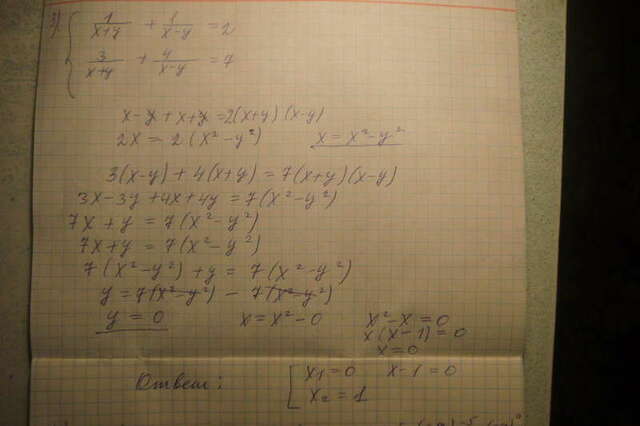 3) { 1/(x+y) + 1/(x-y) = 2
3/(x+y) + 4/(x-y) = 7
x-y + x+y = 2(x+y)(x-y)
2x = 2(x²-y²) x = x²-y²
3(x-y) + 4(x+y) = 7(x+y)(x-y)
3x-3y+4x+4y = 7(x²-y²)
7x + y = 7(x²-y²)
7x+y = 7(x²-y²)
7(x²-y²) + y = 7(x²-y²)
y = 7(x²-y²) - 7(x²-y²)
y = 0 x = x²-0 x²-x = 0
x(x-1) = 0
x=0
Ответ: [ x₁ = 0 x-1 = 0
x₂ = 1